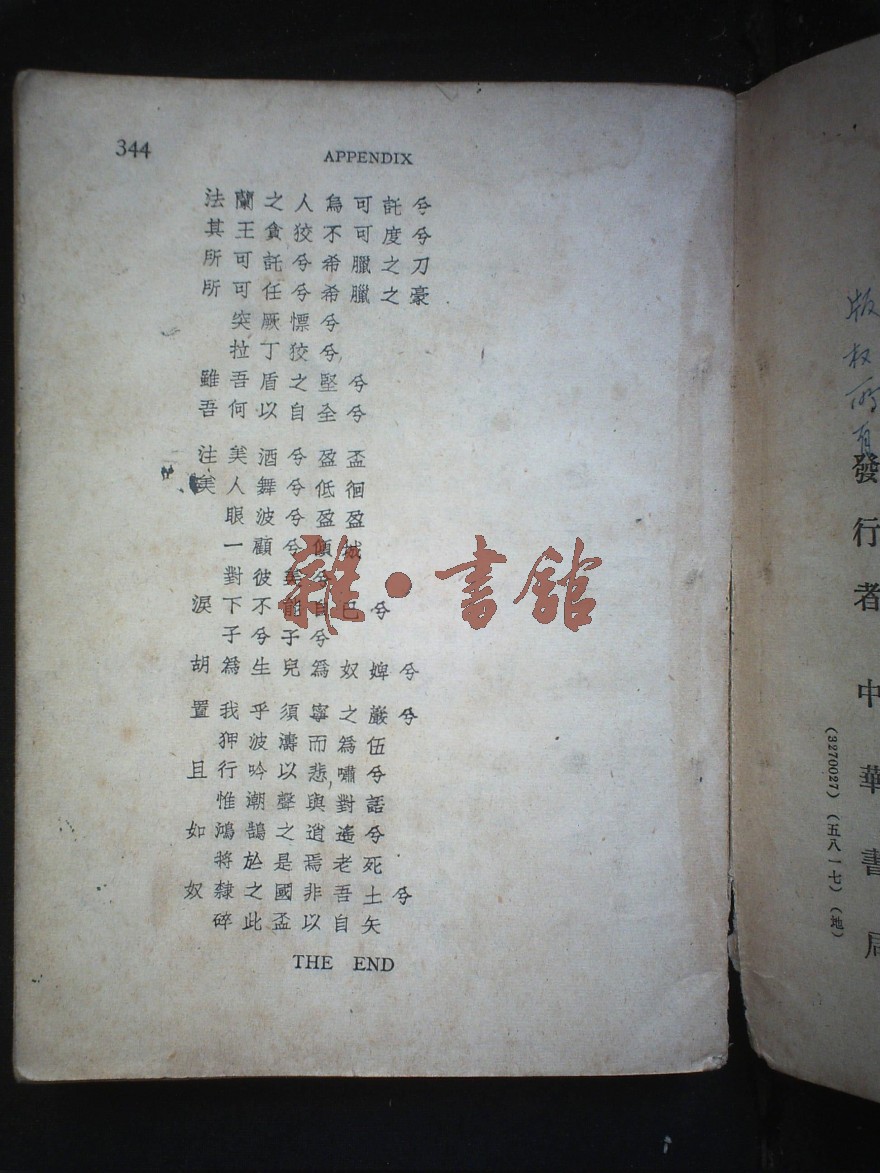 344
APPENDIX
法蘭之人烏可託兮
其王貪狡不可度兮
所可託兮希臘之刀
所可任兮希臘之豪
突厥慓兮
拉丁狡兮
雖吾盾之堅兮
吾何以自全兮
注美酒兮盈盃
美人舞兮低徊
眼波兮盈盈
一顧兮傾城
對彼美兮
淚下不能自已兮
子兮子兮
胡為生兒為奴婢兮
置我乎須寧之巖兮
狎波濤而為伍
且行吟以悲嘯兮
惟潮聲與對話
如鴻鵠之逍遙兮
將於是焉老死
奴隸之國非吾土兮
碎此盃以自矢
THE END
雜·書館
版权所有
發行者中華書局
(3270027)(五八一七)(地)